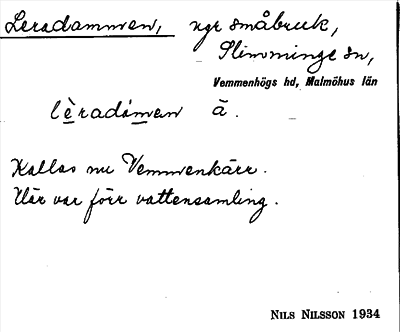 Leradammen, ngr småbruk,
Slimminge sn,
Vemmenhögs hd, Malmöhus län
lèradámen ā.
Kallas nu Vemmenkärr.
Där var förr vattensamling.
NILS NILSSON 1934